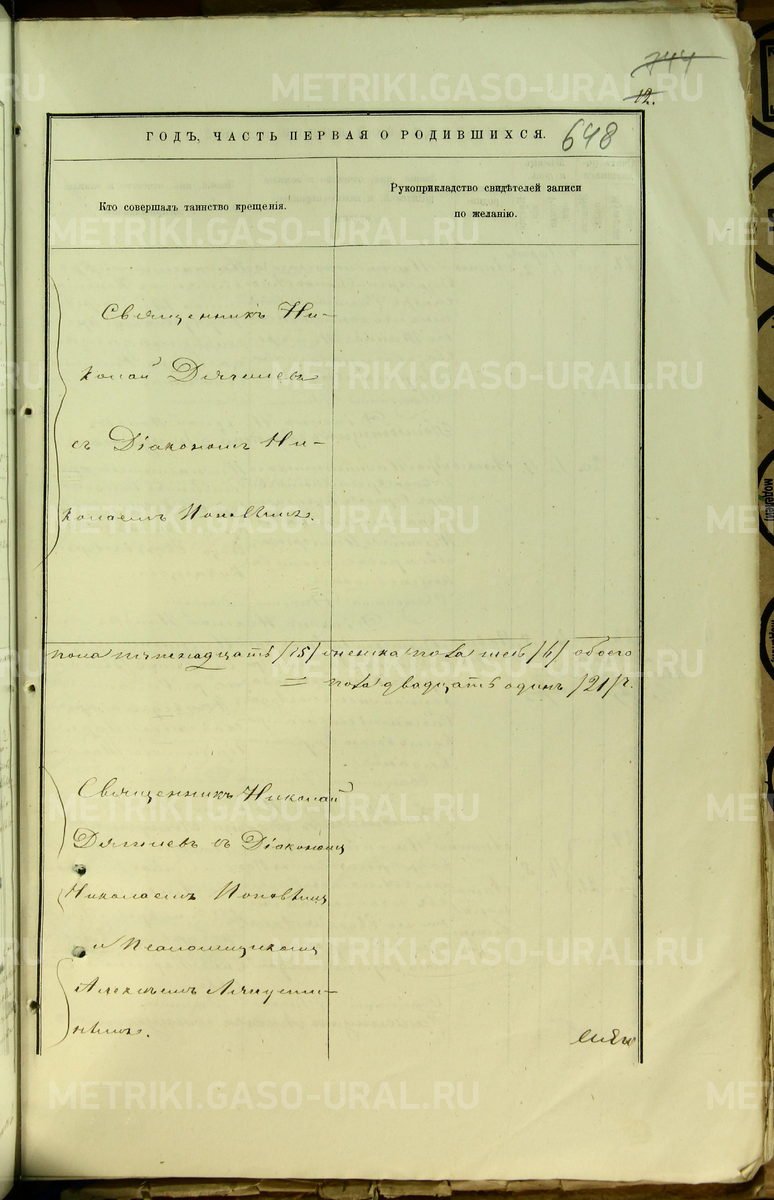 744
12.
648
ГОДЪ, ЧАСТЬ ПЕРВАЯ О РОДИВШИХСЯ.
Кто совершалъ таинство крещенія.
Рукоприкладство свидѣтелей записи
по желанію.
Священникъ Ни-
колай Дягилевъ
съ Діакономъ Ни-
колаемъ Поповымъ.
пола пятнадцать /15/ женска пола шесть /6/ обоего
= пола двадцать одинъ /21/.
Священникъ Николай
Дягилевъ съ Діакономъ
Николаемъ Поповымъ
и Псаломщикомъ
Алексѣемъ
METRIKI.GASO-URAL.RU